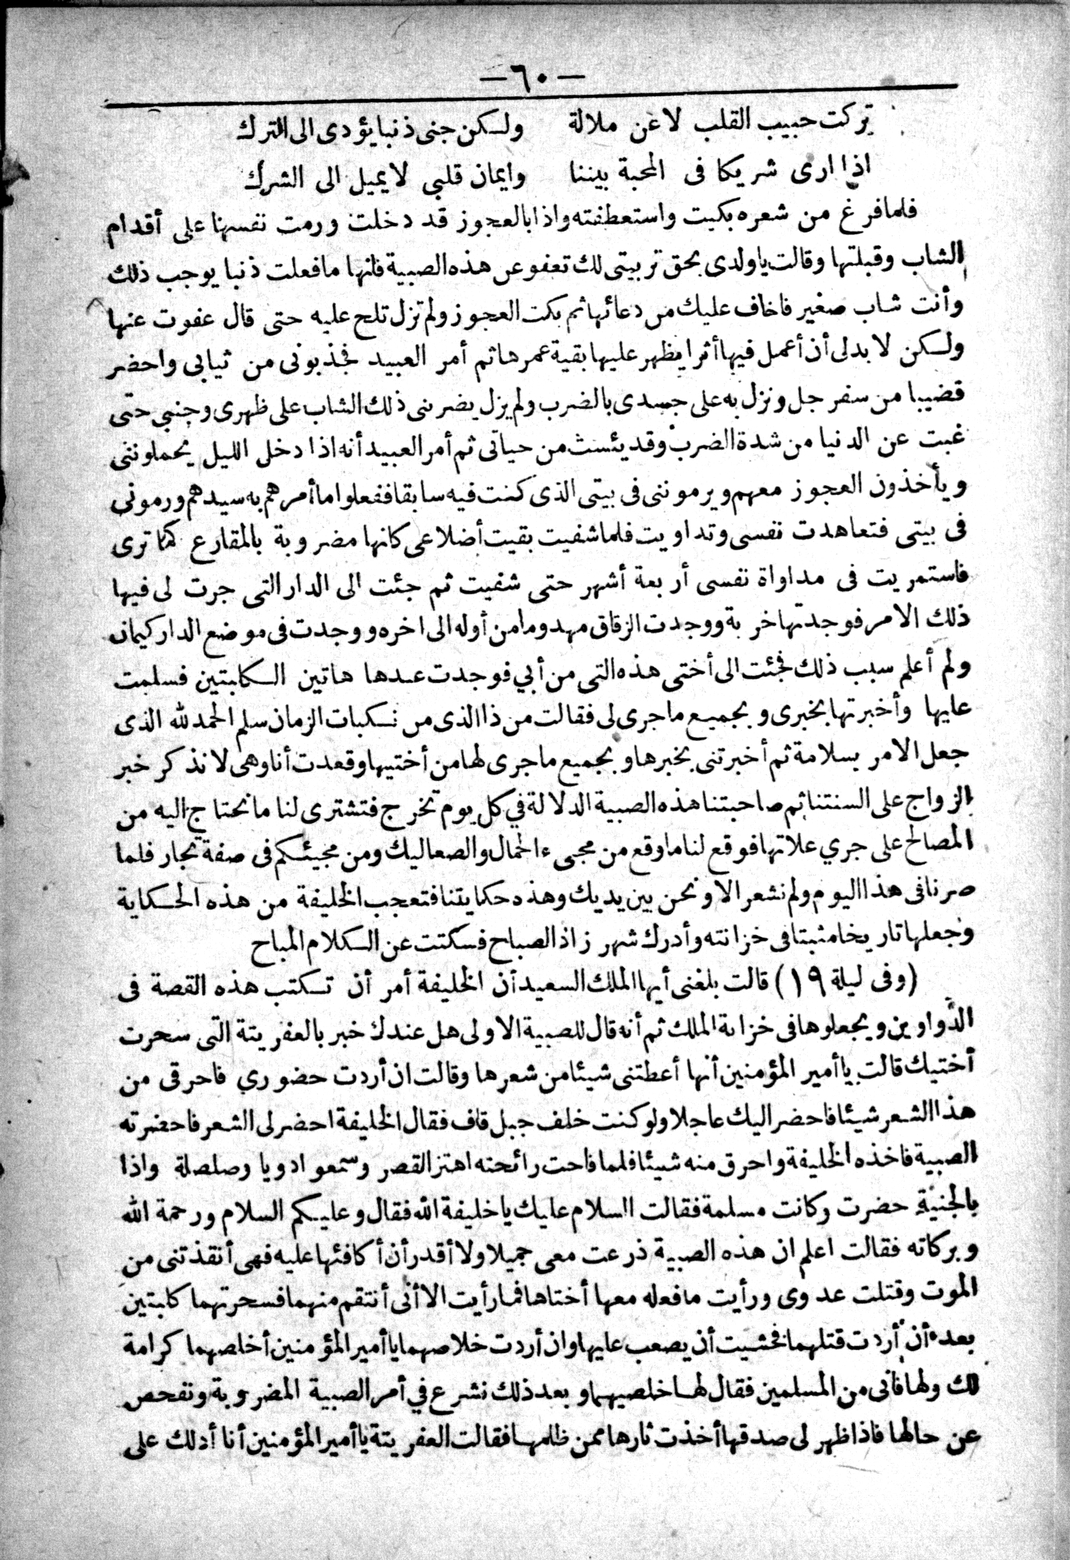 — ٦٠ —
تركت حبيب القلب لا عن ملالة ولكن جنى ذنبا يؤدى الى الترك
اذا ارى شريكا فى المحبة بيننا وايمان قلبي لا يميل الى الشرك
فلما فرغ من شعره بكيت واستعطفته واذا بالعجوز قد دخلت ورمت نفسها على أقدام
الشاب وقبلتها وقالت ياولدى بحق تربيتى لك تعفو عن هذه الصبية فانها ما فعلت ذنبا يوجب ذلك
وأنت شاب صغير فاخاف عليك من دعائها ثم بكت العجوز ولم تزل تلح عليه حتى قال عفوت عنها
ولكن لابد لى أن أعمل فيها أثرا يظهر عليها بقية عمرها ثم أمر العبيد فجذبونى من ثيابى واحضر
قضيبا من سفرجل ونزل به على جسدى بالضرب ولم يزل يضربنى ذلك الشاب على ظهرى وجنبي حتى
غبت عن الدنيا من شدة الضرب وقد يئست من حياتى ثم أمر العبيد أنه اذا دخل الليل يحملوننى
ويأخذون العجوز معهم ويرموننى فى بيتى الذى كنت فيه سابقا ففعلوا ما أمرهم به سيدهم ورمونى
فى بيتى فتعاهدت نفسى وتداويت فلما شفيت بقيت أضلاعى كانها مضروبة بالمقارع كما ترى
فاستمريت فى مداواة نفسى أربعة أشهر حتى شفيت ثم جئت الى الدار التى جرت لى فيها
ذلك الامر فوجدتها خربة ووجدت الزقاق مهدوما من أوله الى اخره ووجدت فى موضع الدار كيمان
ولم أعلم سبب ذلك فجئت الى أختى هذه التى من أبي فوجدت عندها هاتين الكلبتين فسلمت
عليها وأخبرتها بخبرى وبجميع ماجرى لى فقالت من ذا الذى من نكبات الزمان سلم الحمد لله الذى
جعل الامر بسلامة ثم أخبرتنى بخبرها وبجميع ماجرى لها من أختيها وقعدت أنا وهى لانذكر خبر
الزواج على السنتنا ثم صاحبتنا هذه الصبية الدلالة في كل يوم تخرج فتشترى لنا مانحتاج اليه من
المصالح على جري علاتها فوقع لنا ماوقع من مجىء الحمال والصعاليك ومن مجيئكم فى صفة تجار فلما
صرنا فى هذا اليوم ولم نشعر الا ونحن بين يديك وهذه حكايتنا فتعجب الخليفة من هذه الحكاية
وجعلها تاريخا مثبتا فى خزانته وأدرك شهر زاد الصباح فسكتت عن الكلام المباح
(وفى ليلة ١٩) قالت بلغنى أيها الملك السعيد أن الخليفة أمر أن تكتب هذه القصة فى
الدواوين ويجعلوها فى خزانة الملك ثم أنه قال للصبية الاولى هل عندك خبر بالعفريتة التى سحرت
أختيك قالت يا أمير المؤمنين أنها أعطتنى شيئا من شعرها وقالت ان أردت حضوري فاحرقى من
هذا الشعر شيئا فاحضر اليك عاجلا ولو كنت خلف جبل قاف فقال الخليفة احضرلى الشعر فاحضرته
الصبية فاخذه الخليفة واحرق منه شيئا فلما فاحت رائحته اهتز القصر وسمعوا دويا وصلصلة واذا
بالجنية حضرت وكانت مسلمة فقالت السلام عليك ياخليفة الله فقال وعليكم السلام ورحمة الله
وبركاته فقالت اعلم ان هذه الصبية ذرعت معى جميلا ولا أقدر أن أكافئها عليه فهى أنقذتنى من
الموت وقتلت عدوى ورأيت مافعله معها أختاها فما رأيت الا أنى أنتقم منهما فسحرتهما كلبتين
بعد أن أردت قتلهما فخشيت أن يصعب عليها وان أردت خلاصهما يا أمير المؤمنين أخلصهما كرامة
لك ولها فانى من المسلمين فقال لها خلصيهما وبعد ذلك نشرع في أمر الصبية المضروبة وتفحص
عن حالها فاذا ظهر لى صدقها أخذت ثارها ممن ظلمها فقالت العفريتة يا أمير المؤمنين أنا أدلك على